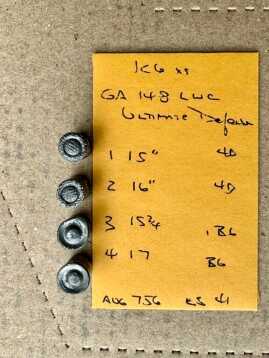 K6 xs
GA 148 LWC
Ultimate Defense
1 15" 4D
2 16" 4D
3 15 3/4 , B6
4 17 B6
AVG 756 ES 41